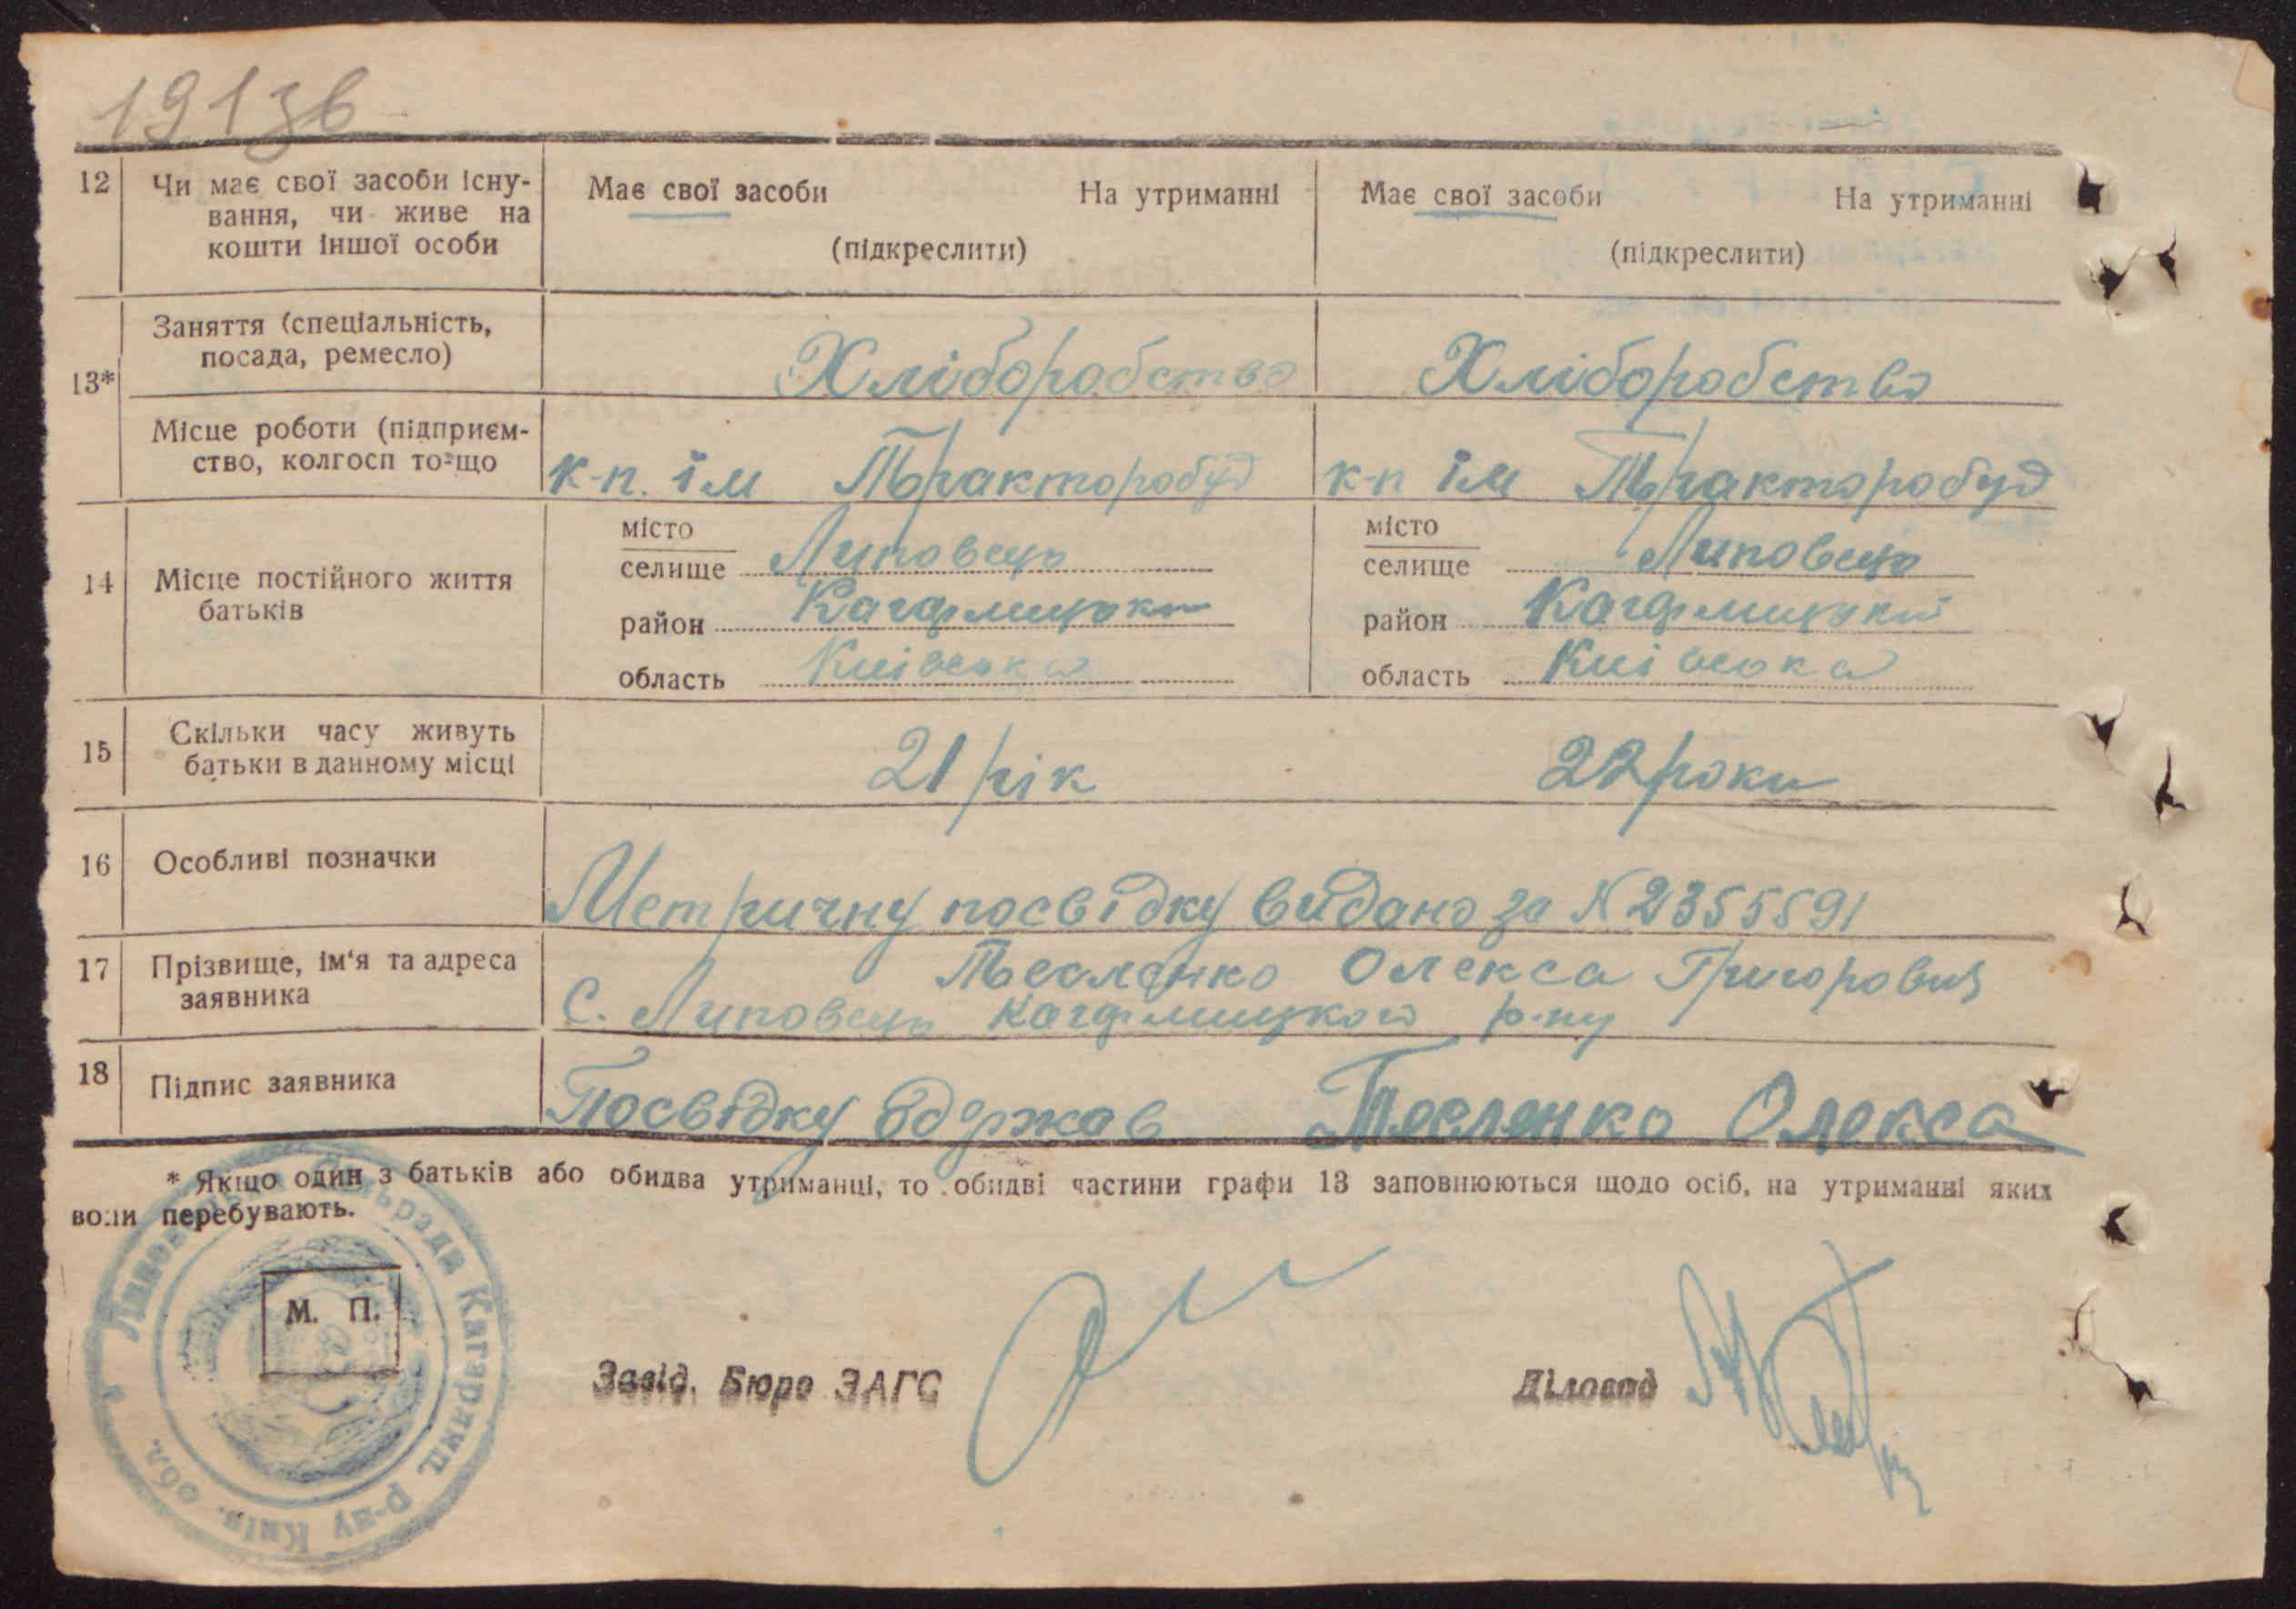 191зв
12 Чи має свої засоби існу- Має свої засоби На утриманні Має свої засоби На утриманні
вання, чи живе на
кошти іншої особи (підкреслити) (підкреслити)
Заняття (спеціальність,
посада, ремесло) Хліборобство Хліборобство
13*
Місце роботи (підприєм-
ство, колгосп то-що к-п. ім Тракторобуд к-п ім Тракторобуд
місто місто
селище Липовець селище Липовець
14 Місце постійного життя
батьків
район Кагарлицьки район Кагарлицький
область Київська область Київська
15 Скільки часу живуть
батьки в данному місці 21 рік 22 роки
16 Особливі позначки
Метричну посвідку видано за № 2355591
17 Прізвище, ім'я та адреса Тесленко Олекса Григорович
заявника С. Липовець Кагарлицького р-ну
18 Підпис заявника Посвідку одержав Тесленко Олекса
* Якщо один з батьків або обидва утриманці, то обидві частини графи 13 заповнюються щодо осіб, на утриманні яких
вони перебувають.
сільрада Кагарлиц. р-ну Київ. обл.
М. П.
Завід. Бюро ЗАГС Діловод